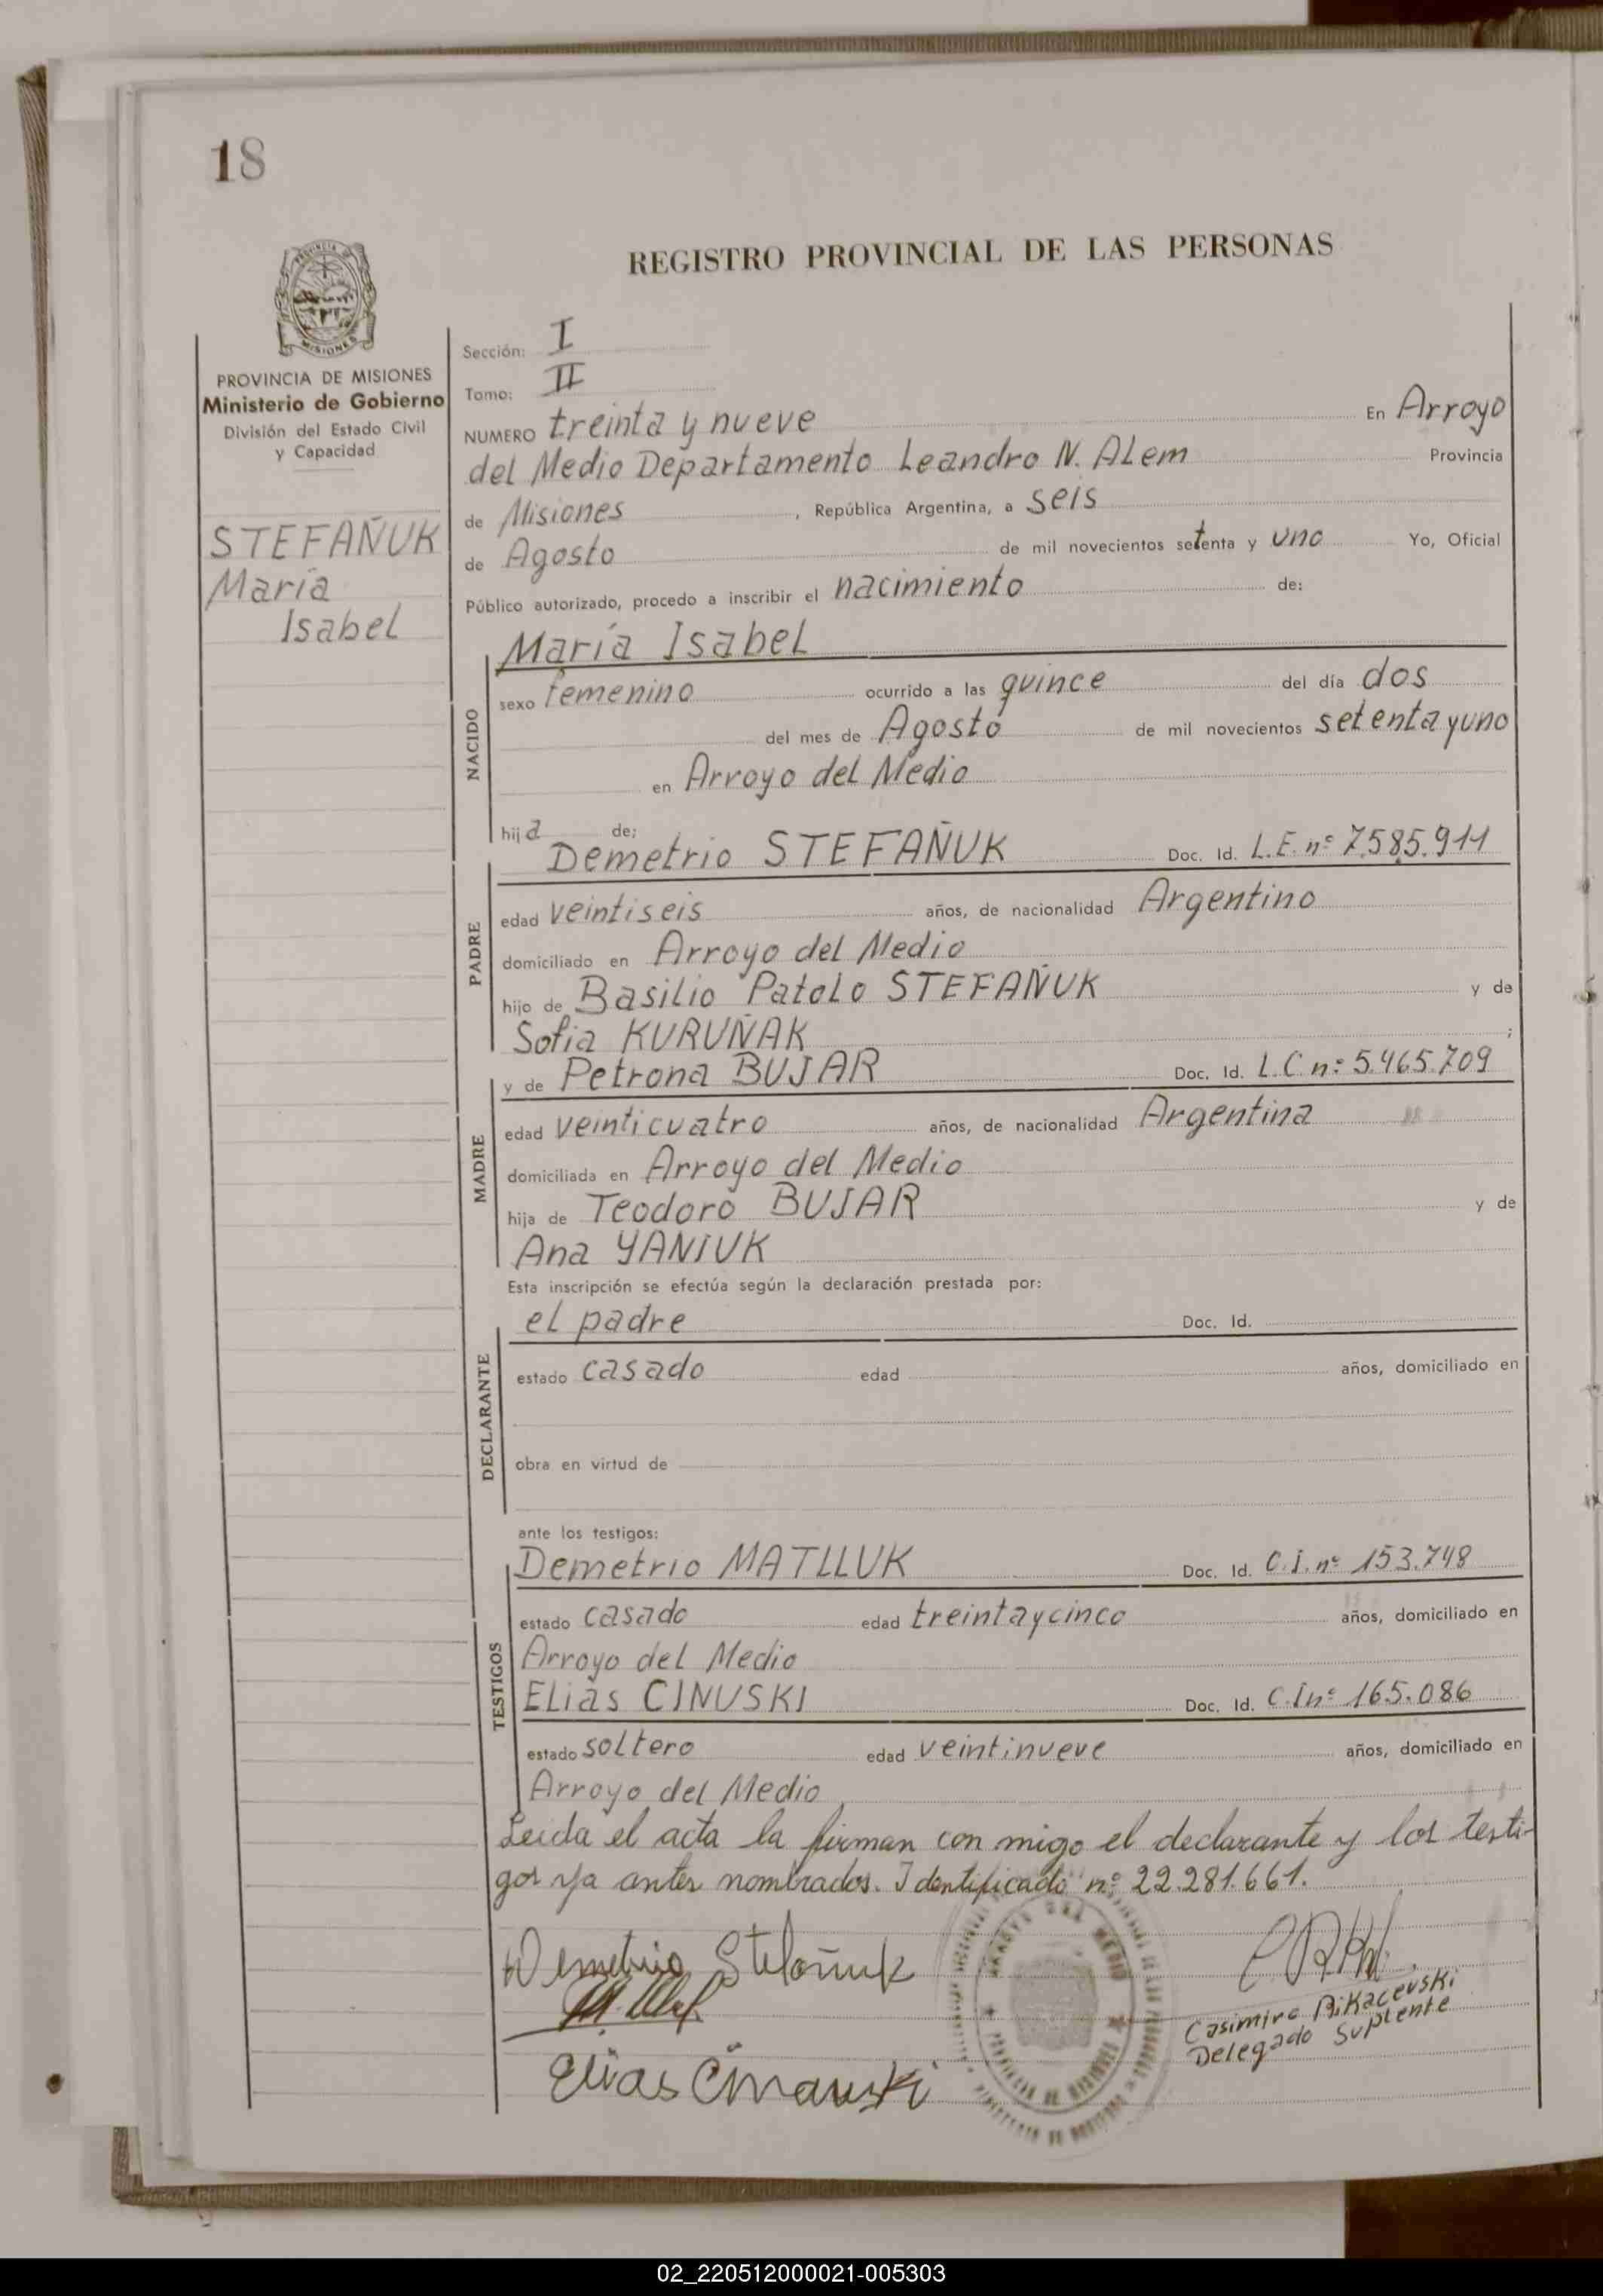 18
REGISTRO PROVINCIAL DE LAS PERSONAS
PROVINCIA DE MISIONES
Ministerio de Gobierno
División del Estado Civil
y Capacidad
STEFAÑUK
María
Isabel
Sección: I
Tomo: II
NUMERO treinta y nueve En Arroyo
del Medio Departamento Leandro N. ALem Provincia
de Misiones, República Argentina, a seis
de Agosto de mil novecientos setenta y uno Yo, Oficial
Público autorizado, procedo a inscribir el nacimiento de:
NACIDO
María Isabel
sexo femenino ocurrido a las quince del día dos
del mes de Agosto de mil novecientos setenta y uno
en Arroyo del Medio
hija de:
PADRE
Demetrio STEFAÑUK Doc. Id. L.E. nº 7.585.911
edad veintiseis años, de nacionalidad Argentino
domiciliado en Arroyo del Medio
hijo de Basilio Patolo STEFAÑUK y de
Sofia KURUÑAK ;
MADRE
y de Petrona BUJAR Doc. Id. L.C nº 5.465.709
edad veinticuatro años, de nacionalidad Argentina
domiciliada en Arroyo del Medio
hija de Teodoro BUJAR y de
Ana YANIUK
Esta inscripción se efectúa según la declaración prestada por:
DECLARANTE
el padre Doc. Id.
estado casado edad años, domiciliado en
obra en virtud de
ante los testigos:
TESTIGOS
Demetrio MATLLUK Doc. Id. C.I. nº 153.748
estado casado edad treinta y cinco años, domiciliado en
Arroyo del Medio
Elias CINUSKI Doc. Id. C.I nº 165.086
estado soltero edad veintinueve años, domiciliado en
Arroyo del Medio
Leida el acta la firman con migo el declarante y los testi-
gos ya antes nombrados. Identificado nº 22.281.661.
Demetrio Stefañuk
Elias Cinauski
Casimiro Rikacevski
Delegado Suplente
02_220512000021-005303